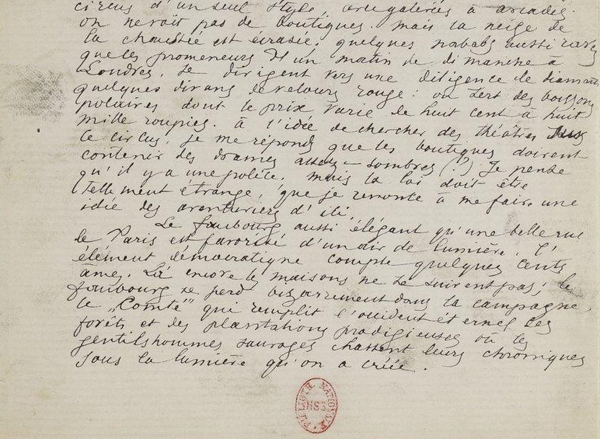 circus d'un seul style, avec galeries à arcades.
on ne voit pas de boutiques. mais la neige de
la chaussée est écrasée, quelques nababs aussi rares
que les promeneurs d'un matin de dimanche à
Londres, se dirigent vers une diligence de diamants
quelques divans de velours rouge: on sert des boissons
polaires dont le prix varie de huit cent à huit
mille roupies. à l'idée de chercher des théâtres sur
le circus, je me réponds que les boutiques doivent
contenir des drames assez sombres (?) Je pense
qu'il y a une police, mais la loi doit être
tellement étrange, que je renonce à me faire une
idée des aventuriers d'ici.
Le faubourg aussi élégant qu'une belle rue
de Paris est favorisé d'un air de lumière. L'
élément démocratique compte quelques cents
âmes. Là encore les maisons ne se suivent pas; le
faubourg se perd bizarrement dans la campagne,
le „Comté" qui remplit l'occident éternel des
forêts et des plantations prodigieuses où les
gentilshommes sauvages chassent leurs chroniques
sous la lumière qu'on a créée.
NATIONALE
MSS